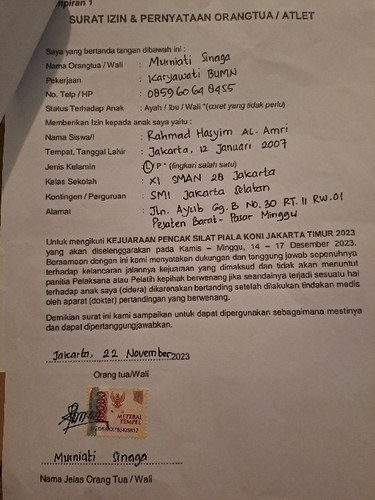 mpiran 1
SURAT IZIN & PERNYATAAN ORANGTUA / ATLET
Saya yang bertanda tangan dibawah ini :
Nama Orangtua / Wali : Murniati Sinaga
Pekerjaan : Karyawati BUMN
No. Telp / HP : 0859 60 64 8455
Status Terhadap Anak : Ayah / Ibu / Wali *(coret yang tidak perlu)
Memberikan Izin kepada anak saya yaitu :
Nama Siswa/i : Rahmad Hasyim AL- Amri
Tempat, Tanggal Lahir : Jakarta, 12 Januari 2007
Jenis Kelamin : L/ P * (lingkari salah satu)
Kelas Sekolah : XI SMAN 28 Jakarta
Kontingen / Perguruan : SMI Jakarta Selatan
Alamat : Jln. Ayub Gg. B No. 30 RT. 11 RW. 01
Pejaten Barat- Pasar Minggu
Untuk mengikuti KEJUARAAN PENCAK SILAT PIALA KONI JAKARTA TIMUR 2023
yang akan diselenggarakan pada Kamis – Minggu, 14 – 17 Desember 2023.
Bersamaan dengan ini kami menyatakan dukungan dan tanggung jawab sepenuhnya
terhadap kelancaran jalannya kejuaraan yang dimaksud dan tidak akan menuntut
panitia Pelaksana atau Pelatih kepihak berwenang jika seandainya terjadi sesuatu hal
terhadap anak saya (cidera) dikarenakan bertanding setelah dilakukan tindakan medis
oleh aparat (dokter) pertandingan yang berwenang.
Demikian surat ini kami sampaikan untuk dapat dipergunakan sebagaimana mestinya
dan dapat dipertanggungjawabkan.
Jakarta, 22 November 2023
Orang tua/Wali
METERAI
TEMPEL
Murniati Sinaga
Nama Jelas Orang Tua / Wali